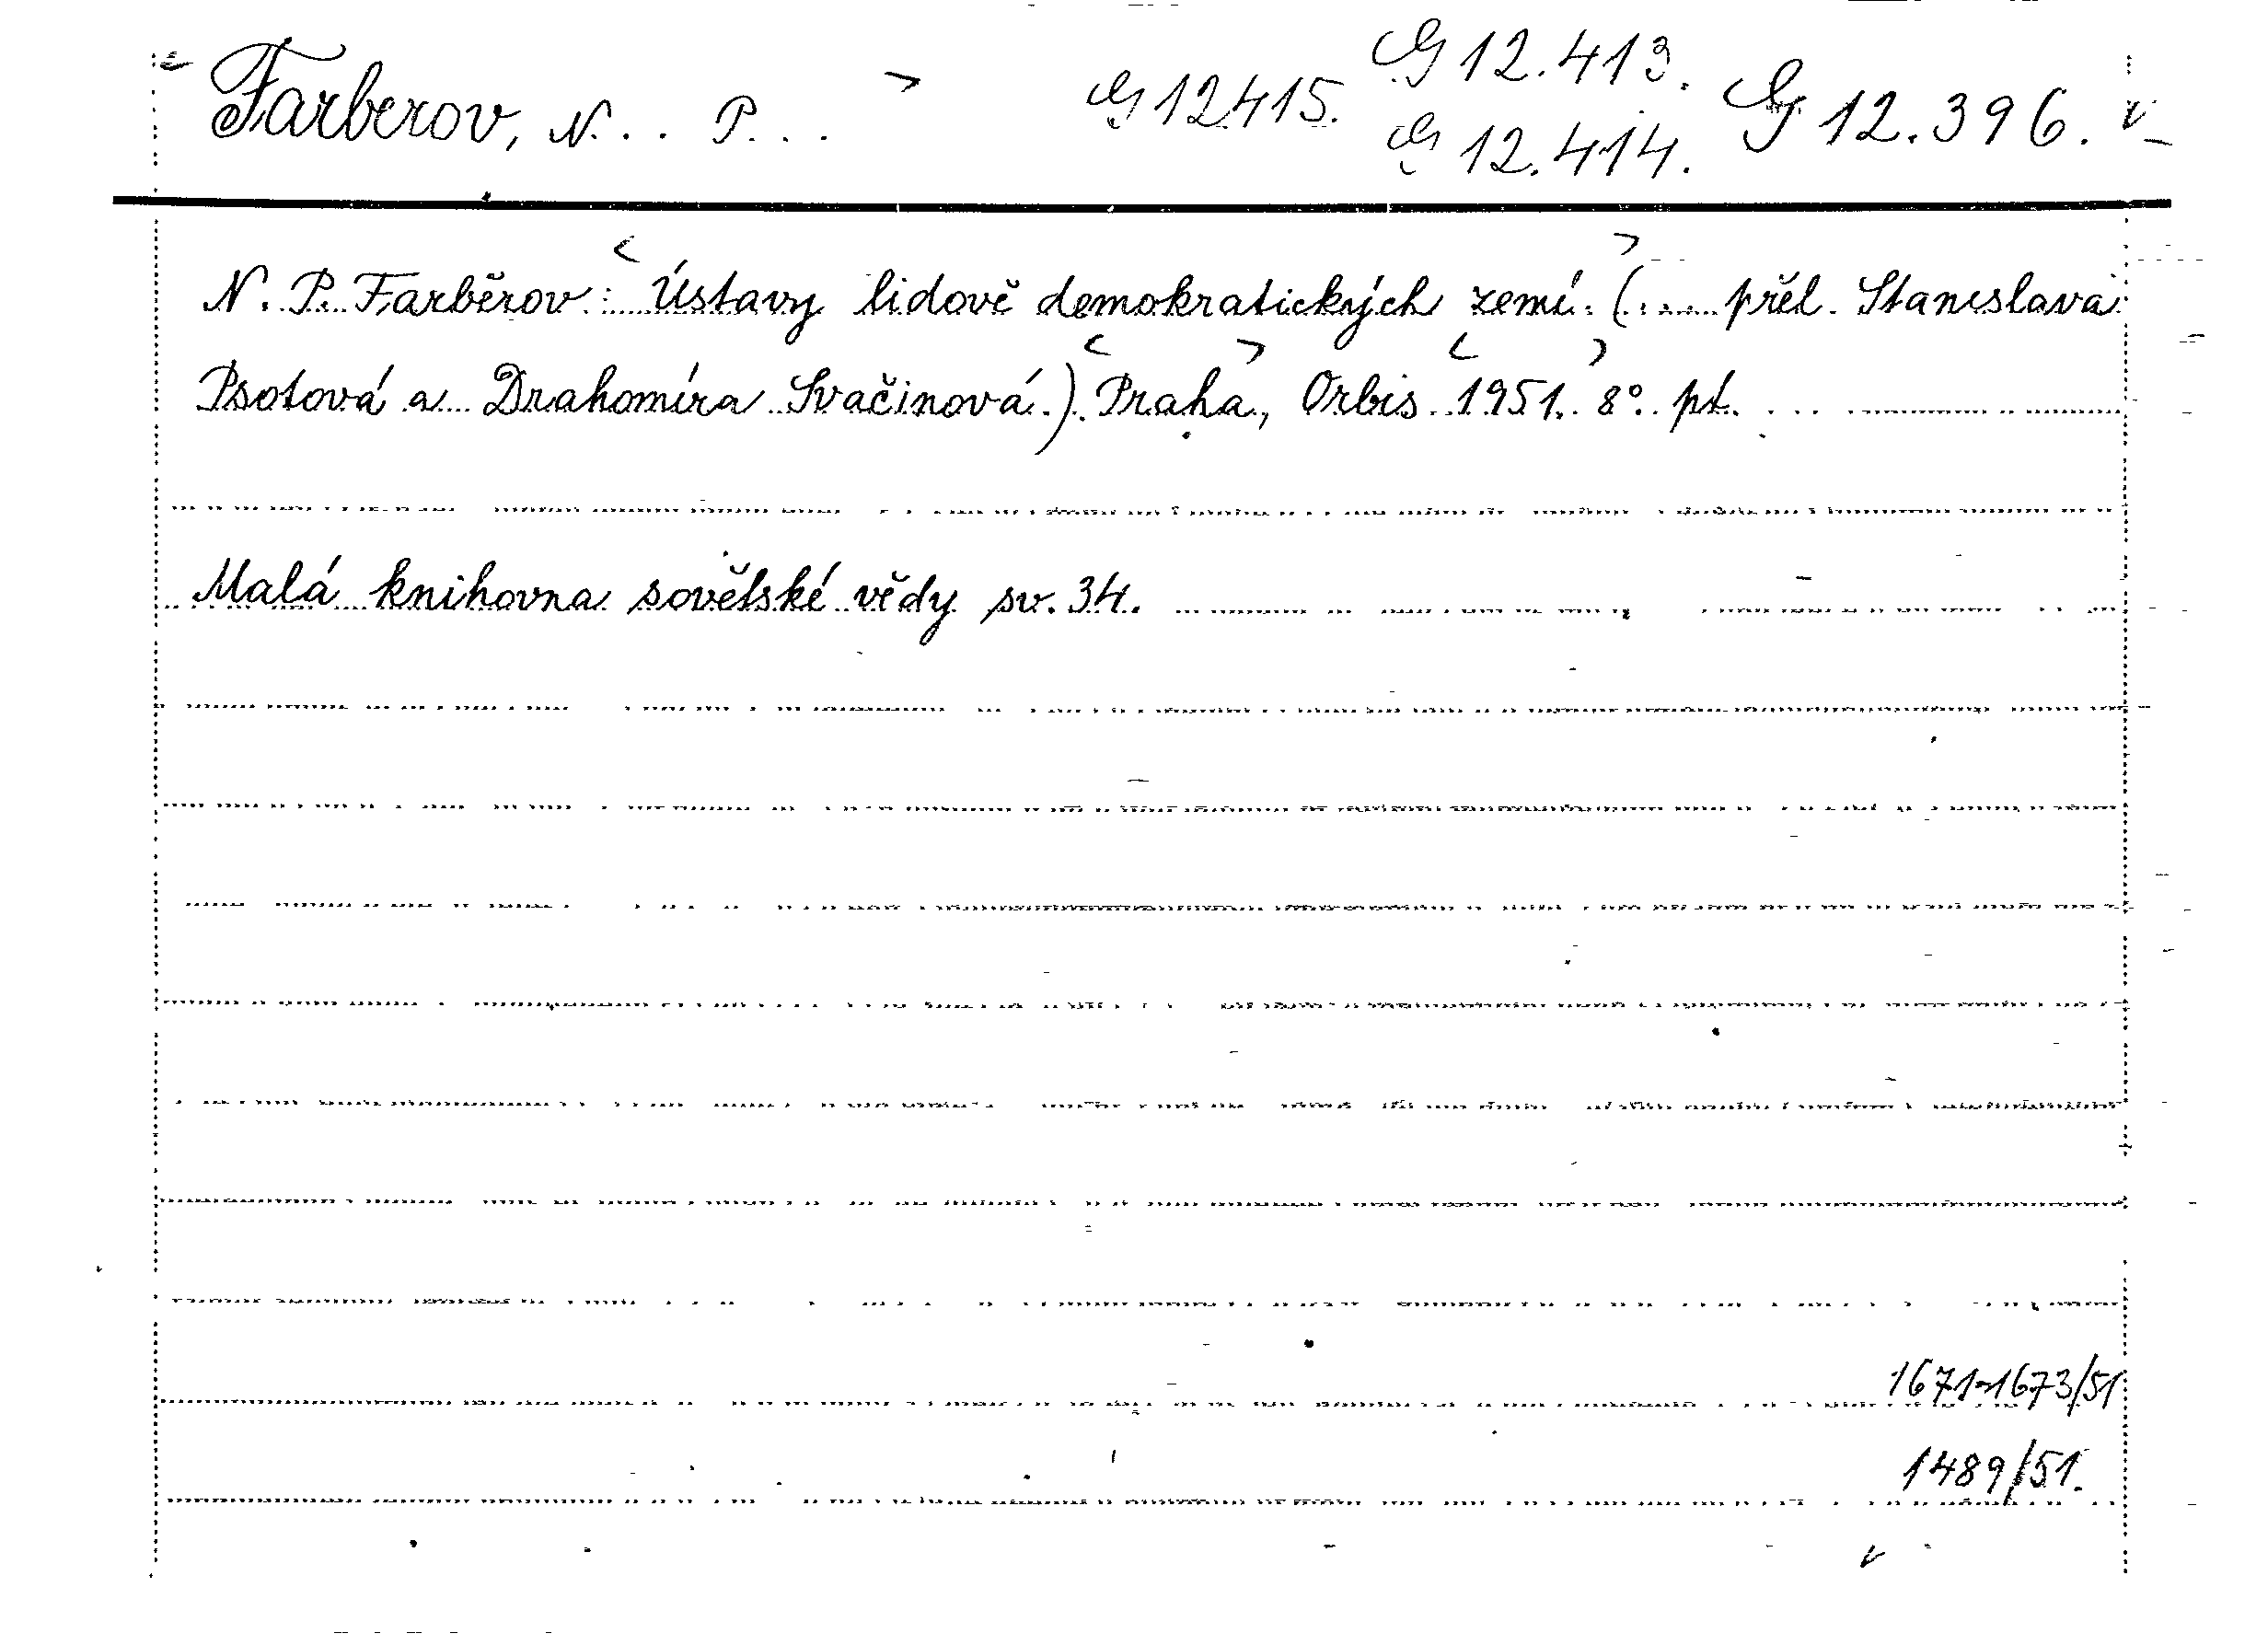 Farberov, N. . P. . .
G 12415. G 12.413. G 12.396.
G 12.414.
N. P. Farběrov: Ústavy lidově demokratických zemí. (.... přel. Stanislava
Psotová a Drahomíra Svačinová.) Praha, Orbis 1951. 8°. pt. . . .
Malá knihovna sovětské vědy sv. 34.
1671-1673/51
1489/51.